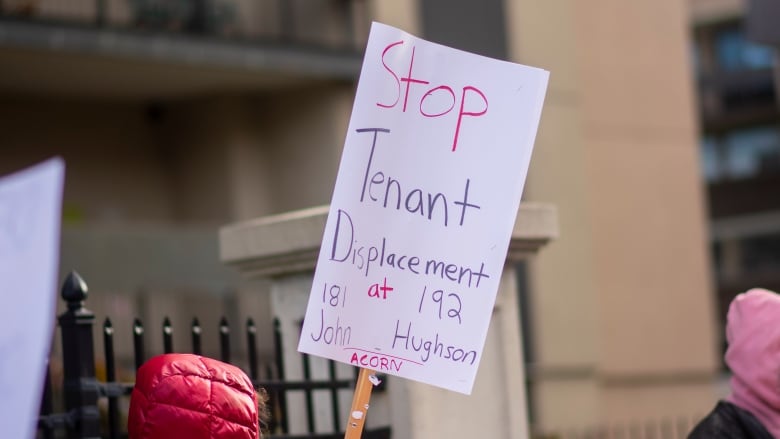 Stop
Tenant
Displacement
181 at 192
John Hughson
ACORN